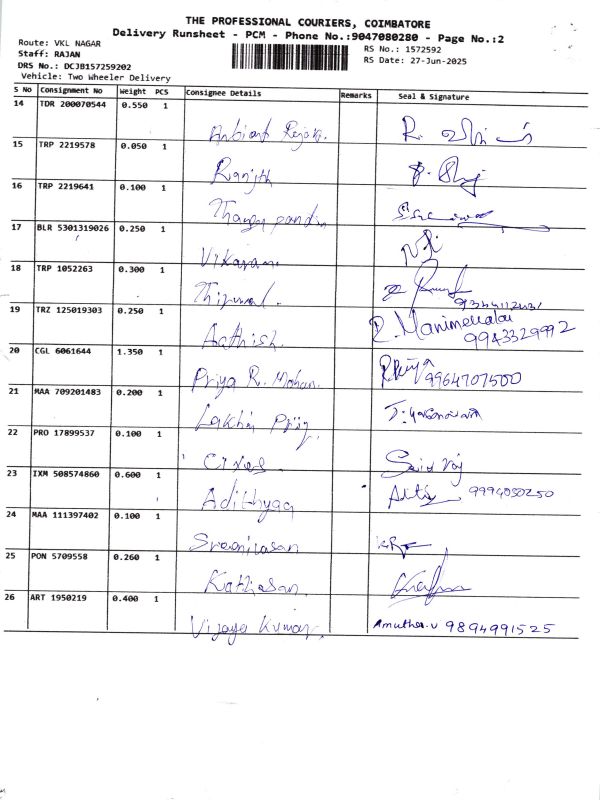 THE PROFESSIONAL COURIERS, COIMBATORE
Delivery Runsheet - PCM - Phone No.:9047080280 - Page No.:2
Route: VKL NAGAR RS No.: 1572592
Staff: RAJAN RS Date: 27-Jun-2025
DRS No.: DCJB157259202
Vehicle: Two Wheeler Delivery
S No Consignment No Weight PCS Consignee Details Remarks Seal & Signature
14 TDR 200070544 0.550 1
R.
15 TRP 2219578 0.050 1
Ranjith
16 TRP 2219641 0.100 1
17 BLR 5301319026 0.250 1
Vikaram
18 TRP 1052263 0.300 1
Thirumal.
19 TRZ 125019303 0.250 1
Aathish. R. Manimekalai
9943329992
20 CGL 6061644 1.350 1
Priya R. Mohan. R Priya 9964707500
21 MAA 709201483 0.200 1
22 PRO 17899537 0.100 1
23 IXM 508574860 0.600 1
Adithyaa 9994050250
24 MAA 111397402 0.100 1
Sreenivasan
25 PON 5709558 0.260 1
26 ART 1950219 0.400 1
Vijaya Kumar. Amutha.v 9894991525